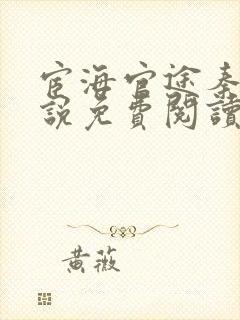 宦海官途秦
說免費閱讀
黃薇